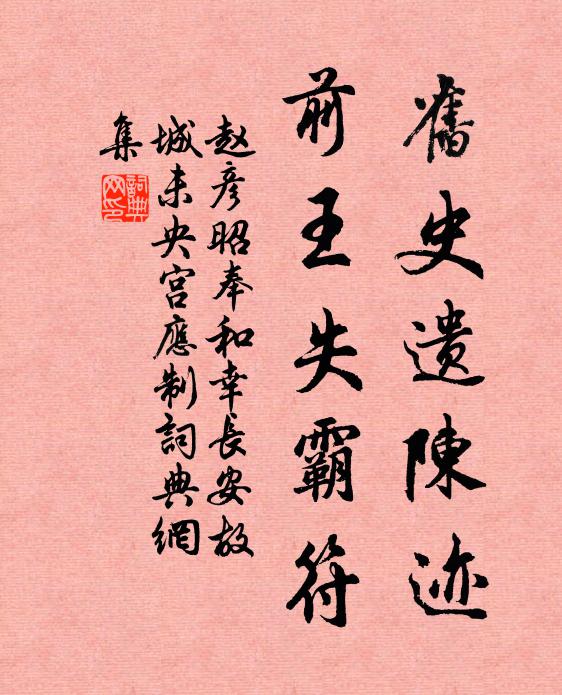 舊史遺陳迹
前王失霸符
赵彦昭奉和幸長安故
城未央宫應制詞典網
集
詞典
网印